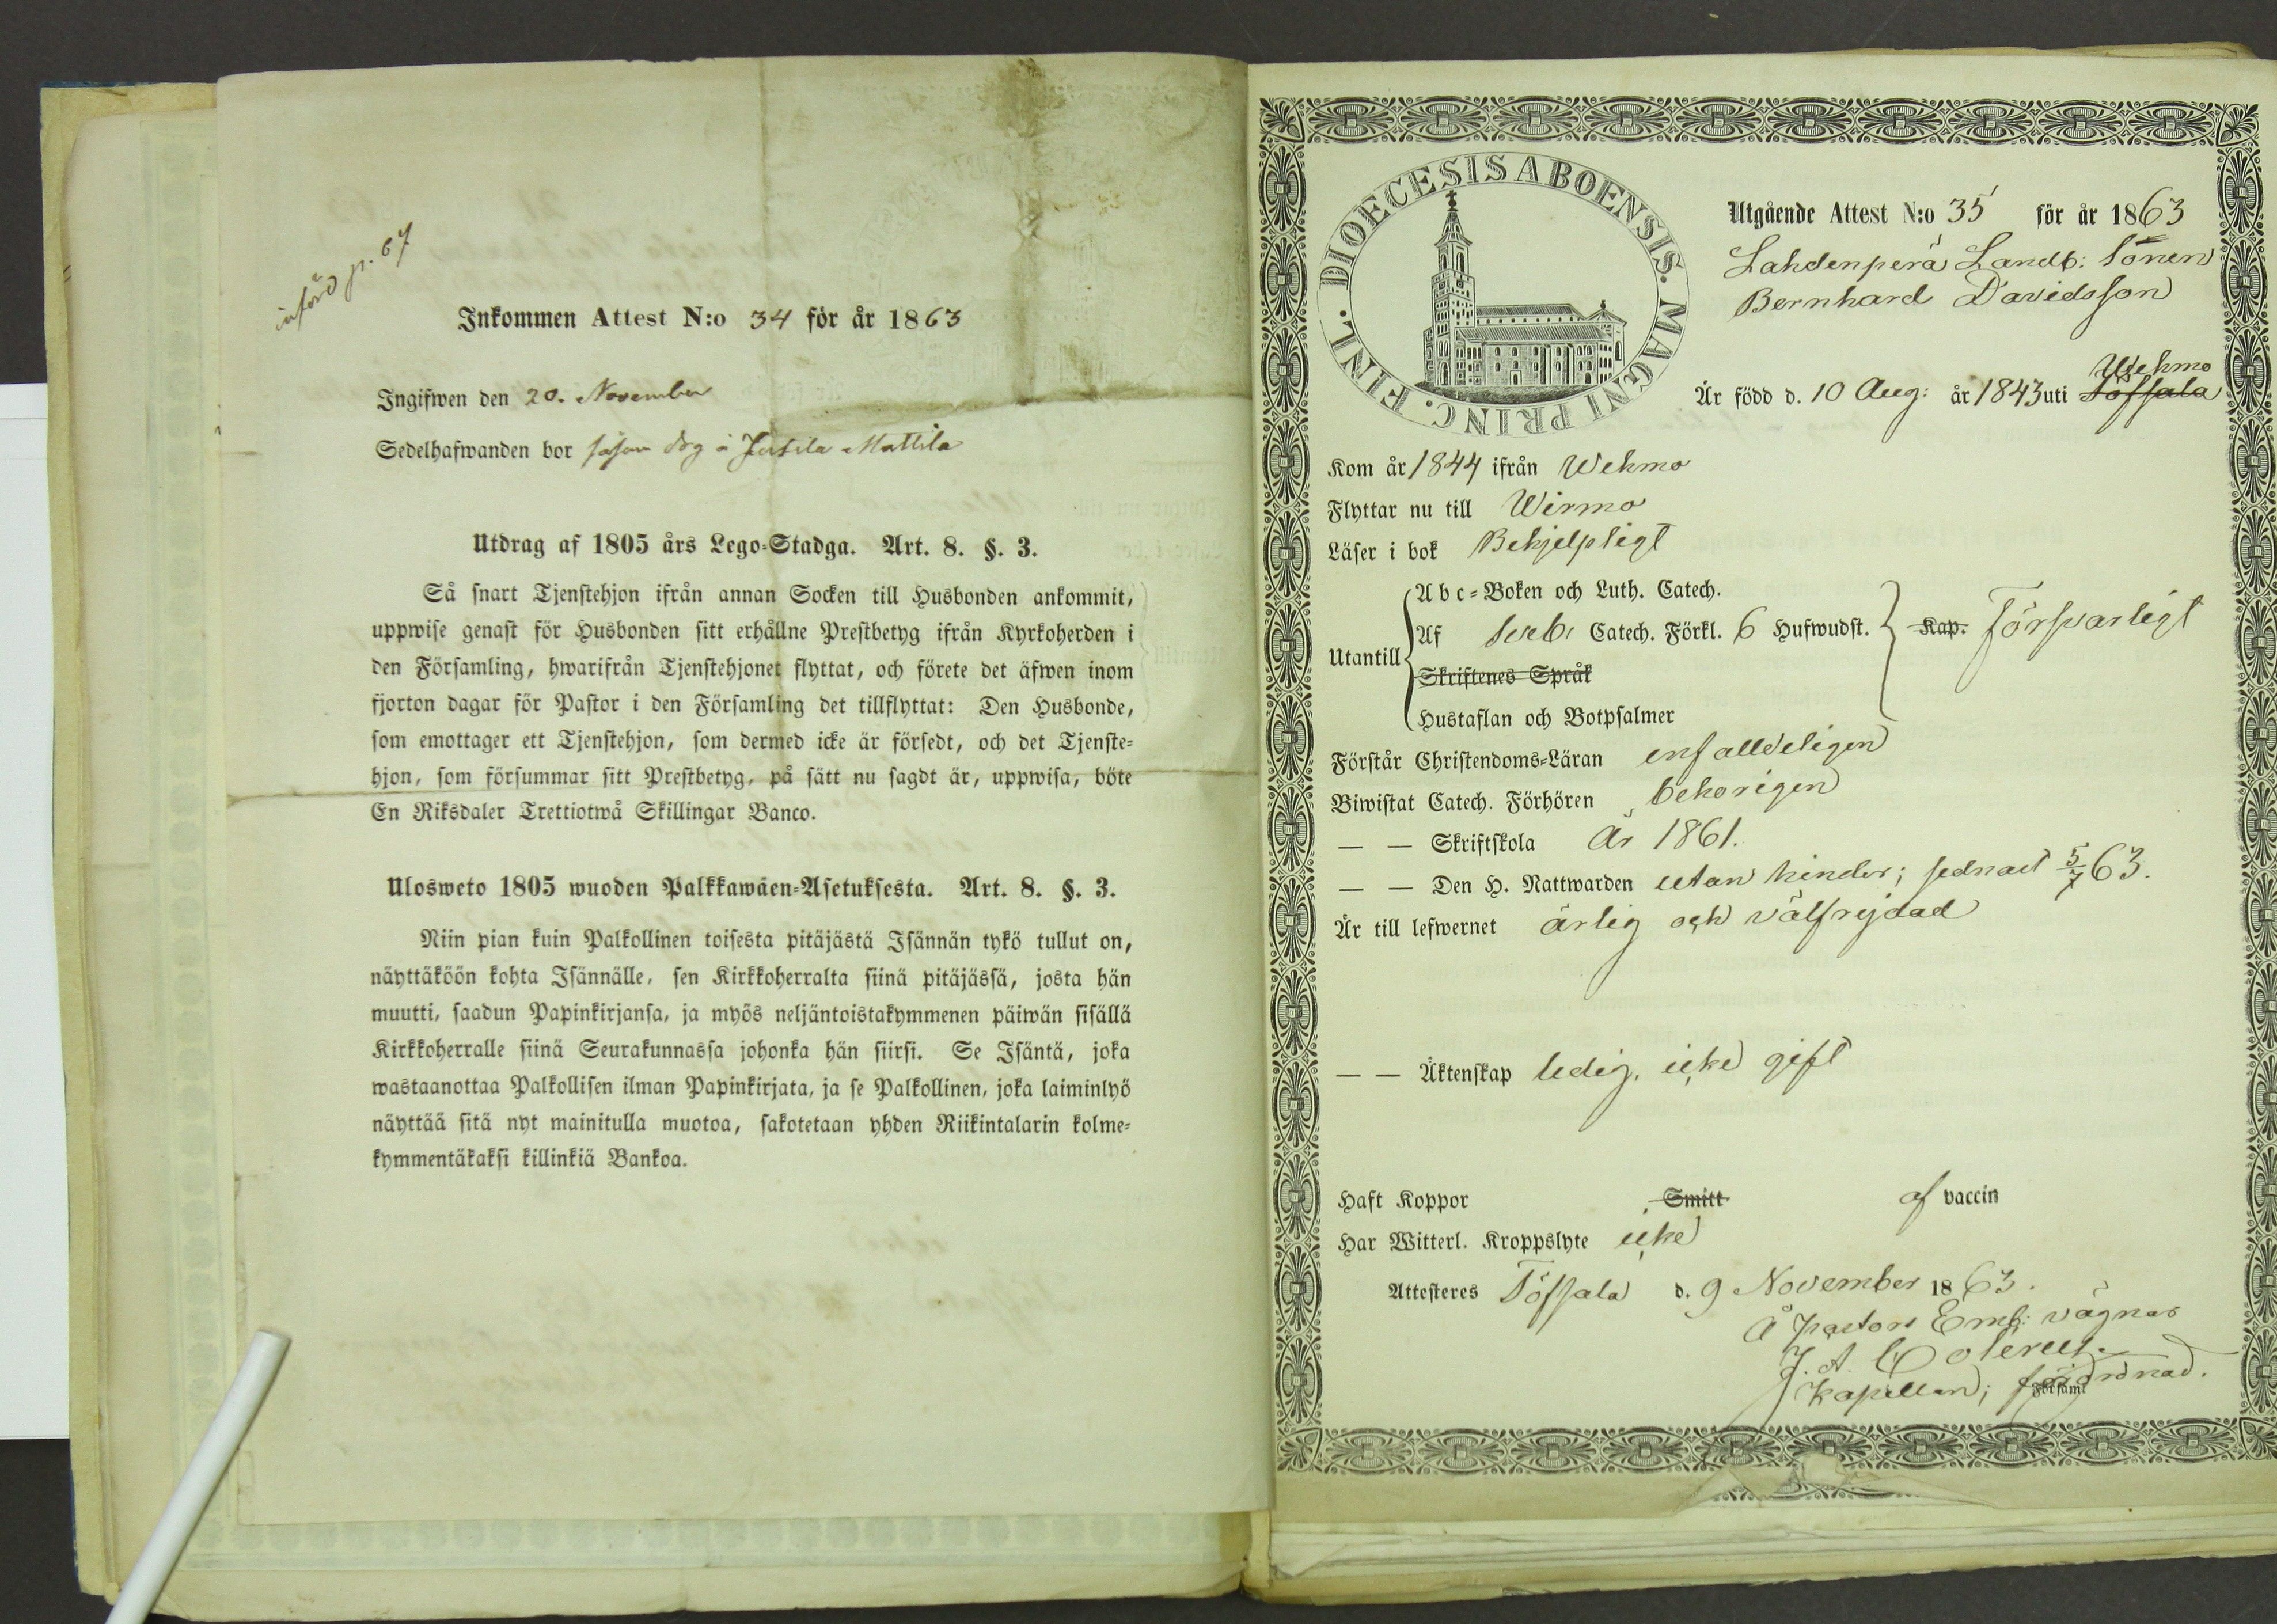 införd p. 67
Inkommen Attest N:o 34 för år 1863
Ingifwen den 20. November
Sedelhafwanden bor såsom drg å Mattila
Utdrag af 1805 års Lego-Stadga. Art. 8. §. 3.
Så snart Tjenstehjon ifrån annan Socken till Husbonden ankommit,
uppwise genast för Husbonden sitt erhållne Prestbetyg ifrån Kyrkoherden i
den Församling, hwarifrån Tjenstehjonet flyttat, och förete det äfwen inom
fjorton dagar för Pastor i den Församling det tillflyttat: Den Husbonde,
som emottager ett Tjenstehjon, som dermed icke är försedt, och det Tjenste-
hjon, som försummar sitt Prestbetyg, på sätt nu sagdt är, uppwisa, böte
En Riksdaler Trettiotwå Skillingar Banco.
Ulosweto 1805 wuoden Palkkawäen-Asetuksesta. Art. 8. §. 3.
Niin pian kuin Palkollinen toisesta pitäjästä Isännän tykö tullut on,
näyttäköön kohta Isännälle, sen Kirkkoherralta siinä pitäjässä, josta hän
muutti, saadun Papinkirjansa, ja myös neljäntoistakymmenen päiwän sisällä
Kirkkoherralle siinä Seurakunnassa johonka hän siirsi. Se Isäntä, joka
wastaanottaa Palkollisen ilman Papinkirjata, ja se Palkollinen, joka laiminlyö
näyttää sitä nyt mainitulla muotoa, sakotetaan yhden Riikintalarin kolme-
kymmentäkaksi killinkiä Bankoa.
DIOECESIS ABOENSIS. MAGNI PRINC. FINL.
Utgående Attest N:o 35 för år 1863
Lahdenperä Landb: Sonen
Bernhard Davidsson
Wehmo
Är född d. 10 Aug: år 1843 uti Töfsala
Kom år 1844 ifrån Wehmo
Flyttar nu till Wirmo
Läser i bok Behjelpligt
Abc-Boken och Luth. Catech.
Utantill Af Sveb. Catech. Förkl. 6 Hufwudst. Kap. Försvarligt
Skriftenes Språk
Hustaflan och Botpsalmer
Förstår Christendoms-Läran enfalldeligen
Biwistat Catech. Förhören behörigen
— — Skriftskola År 1861.
— — Den H. Nattwarden utan hinder; sednast 5/7 63.
Är till lefwernet ärlig och välfrejdad
— — Äktenskap ledig, icke gift
Haft Koppor Smitt af vaccin
Har Witterl. Kroppslyte icke
Attesteres Töfsala d. 9 November 1863.
Å Pastors Emb: vägnar
J. A.
Kapellan; förordnad.
Församl